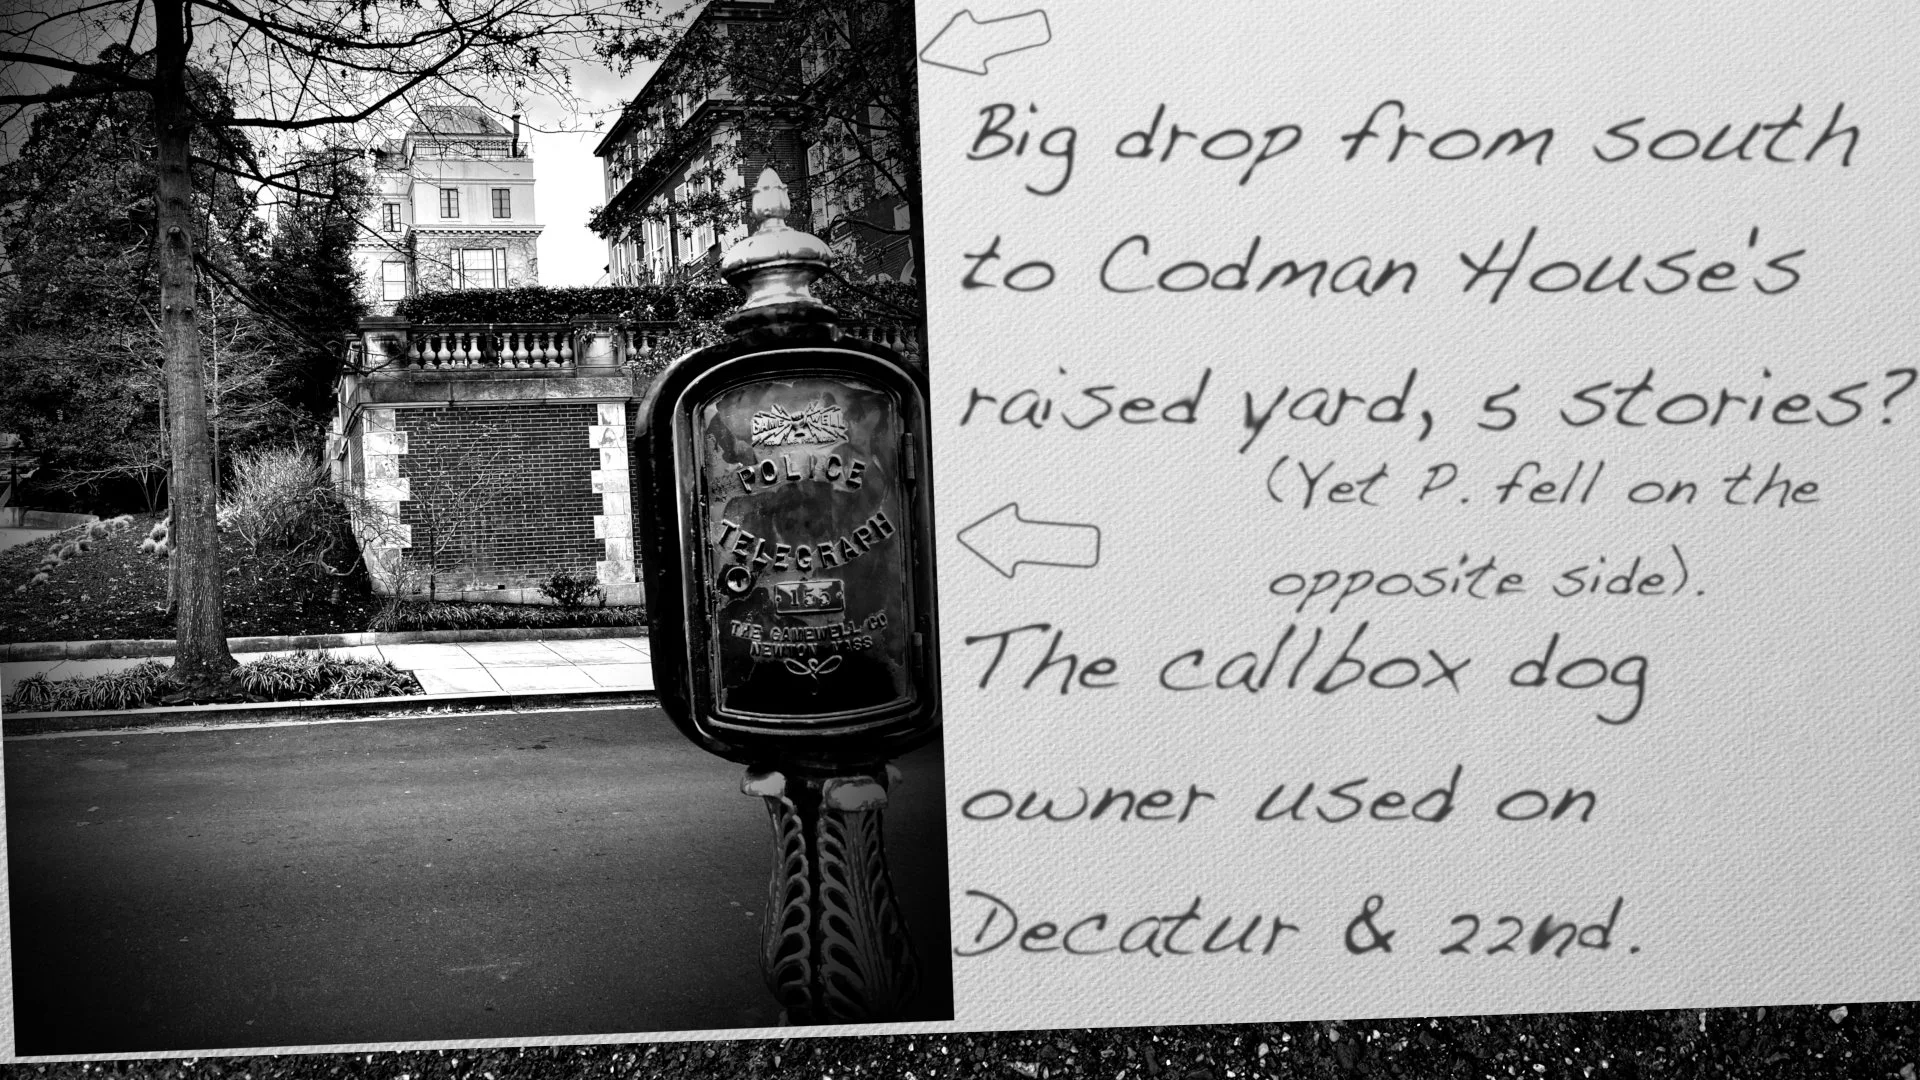 GAMEWELL
POLICE
TELEGRAPH
155
THE GAMEWELL CO
NEWTON MASS
Big drop from south
to Codman House's
raised yard, 5 stories?
(Yet P. fell on the
opposite side).
The callbox dog
owner used on
Decatur & 22nd.